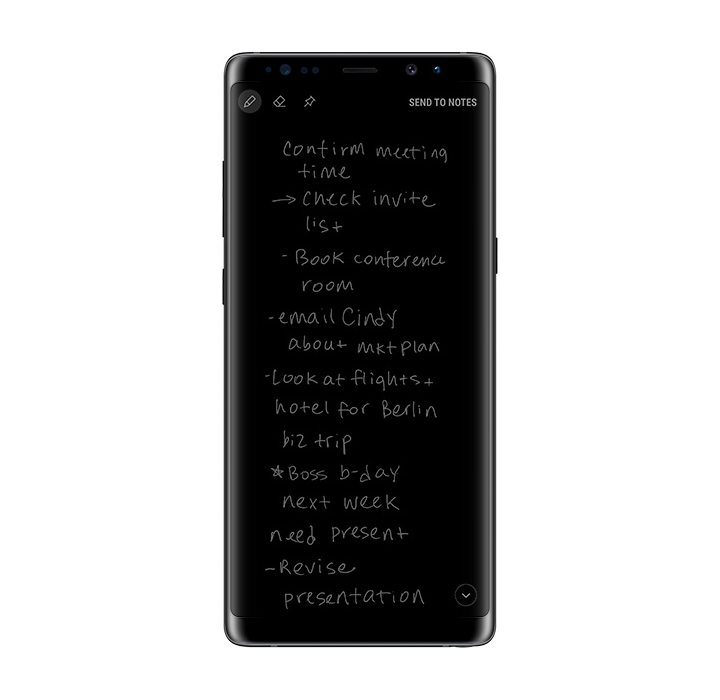 SEND TO NOTES
Confirm meeting
time
→ Check invite
list
- Book conference
room
- email Cindy
about mkt plan
- Look at flights +
hotel for Berlin
biz trip
☆ Boss b-day
next week
need present
- Revise
presentation